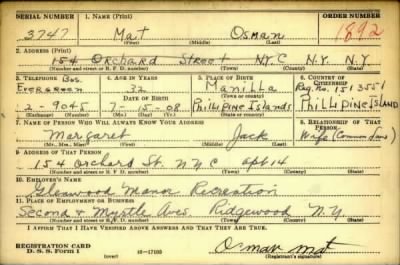 SERIAL NUMBER 1. NAME (Print) ORDER NUMBER
3747 Mat Osman 1892
(First) (Middle) (Last)
2. ADDRESS (Print)
154 Orchard Street N.Y.C N.Y. N.Y.
(Number and street or R. F. D. number) (Town) (County) (State)
3. TELEPHONE Bus. 4. AGE IN YEARS 5. PLACE OF BIRTH 6. COUNTRY OF CITIZENSHIP
Evergreen 32 Manilla Reg. No. 1513551
DATE OF BIRTH (Town or county)
2-9045 7-15-08 Phillipine Islands Phillipine Island
(Exchange) (Number) (Mo.) (Day) (Yr.) (State or country)
7. NAME OF PERSON WHO WILL ALWAYS KNOW YOUR ADDRESS 8. RELATIONSHIP OF THAT PERSON
Margaret Jack Wife (Common Law)
(Mr., Mrs., Miss) (First) (Middle) (Last)
9. ADDRESS OF THAT PERSON
154 Orchard St. N.Y.C apt 14
(Number and street or R. F. D. number) (Town) (County) (State)
10. EMPLOYER'S NAME
Glenwood Manor Recreation
11. PLACE OF EMPLOYMENT OR BUSINESS
Second & Myrtle Aves Ridgewood N.Y.
(Number and street or R. F. D. number) (Town) (County) (State)
I AFFIRM THAT I HAVE VERIFIED ABOVE ANSWERS AND THAT THEY ARE TRUE.
REGISTRATION CARD
D. S. S. Form 1 (over) 16-17105 Osman Mat
(Registrant's signature)